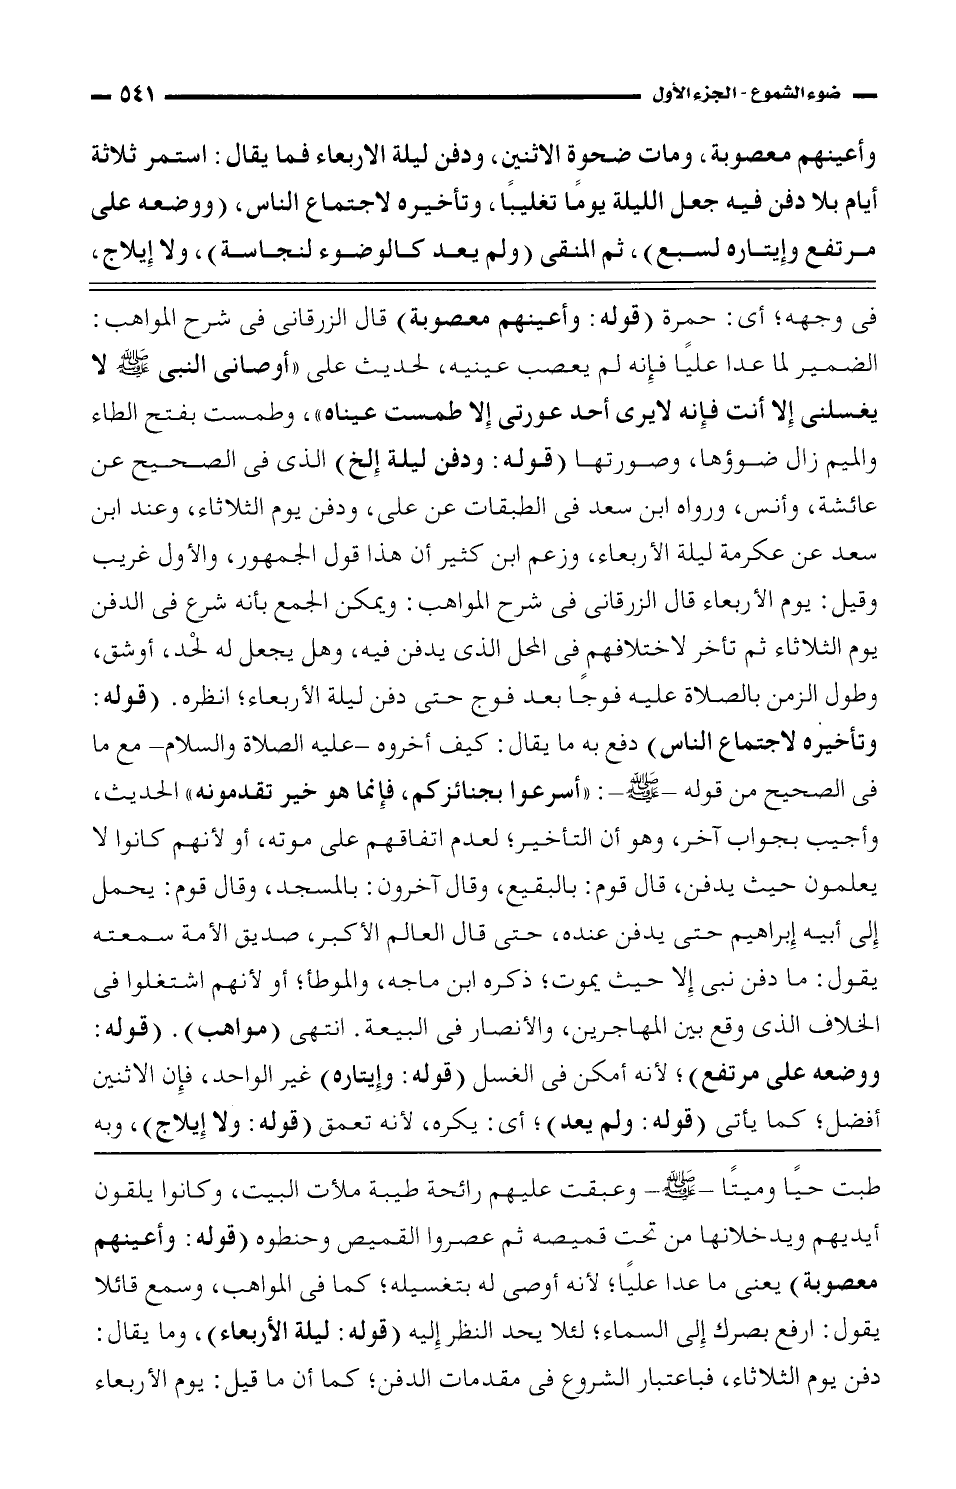 ضوء الشموع - الجزء الأول ٥٤١
وأعينهم معصوبة، ومات ضحوة الاثنين، ودفن ليلة الاربعاء فما يقال: استمر ثلاثة
أيام بلا دفن فيه جعل الليلة يومًا تغليبًا، وتأخيره لاجتماع الناس، (ووضعه على
مرتفع وإيتاره لسبع)، ثم المنقى (ولم يعد كالوضوء لنجاسة)، ولا إيلاج،
فى وجهه؛ أى: حمرة (قوله: وأعينهم معصوبة) قال الزرقانى فى شرح المواهب:
الضمير لما عدا عليًا فإنه لم يعصب عينيه، لحديث على «أوصانى النبى ﷺ لا
يغسلنى إلا أنت فإنه لايرى أحد عورتى إلا طمست عيناه»، وطمست بفتح الطاء
والميم زال ضوؤها، وصورتها (قوله: ودفن ليلة إلخ) الذى فى الصحيح عن
عائشة، وأنس، ورواه ابن سعد فى الطبقات عن على، ودفن يوم الثلاثاء، وعند ابن
سعد عن عكرمة ليلة الأربعاء، وزعم ابن كثير أن هذا قول الجمهور، والأول غريب
وقيل: يوم الأربعاء قال الزرقانى فى شرح المواهب: ويمكن الجمع بأنه شرع فى الدفن
يوم الثلاثاء ثم تأخر لاختلافهم فى المحل الذى يدفن فيه، وهل يجعل له لحْد، أوشق،
وطول الزمن بالصلاة عليه فوجًا بعد فوج حتى دفن ليلة الأربعاء؛ انظره. (قوله:
وتأخيره لاجتماع الناس) دفع به ما يقال: كيف أخروه -عليه الصلاة والسلام- مع ما
فى الصحيح من قوله -ﷺ-: «أسرعوا بجنائزكم، فإنما هو خير تقدمونه» الحديث،
وأجيب بجواب آخر، وهو أن التأخير؛ لعدم اتفاقهم على موته، أو لأنهم كانوا لا
يعلمون حيث يدفن، قال قوم: بالبقيع، وقال آخرون: بالمسجد، وقال قوم: يحمل
إلى أبيه إبراهيم حتى يدفن عنده، حتى قال العالم الأكبر، صديق الأمة سمعته
يقول: ما دفن نبى إلا حيث يموت؛ ذكره ابن ماجه، والموطأ؛ أو لأنهم اشتغلوا فى
الخلاف الذى وقع بين المهاجرين، والأنصار فى البيعة. انتهى (مواهب). (قوله:
ووضعه على مرتفع)؛ لأنه أمكن فى الغسل (قوله: وإيتاره) غير الواحد، فإن الاثنين
أفضل؛ كما يأتى (قوله: ولم يعد)؛ أى: يكره، لأنه تعمق (قوله: ولا إيلاج)، وبه
طبت حيًا وميتًا -ﷺ- وعبقت عليهم رائحة طيبة ملأت البيت، وكانوا يلقون
أيديهم ويدخلانها من تحت قميصه ثم عصروا القميص وحنطوه (قوله: وأعينهم
معصوبة) يعنى ما عدا عليًا؛ لأنه أوصى له بتغسيله؛ كما فى المواهب، وسمع قائلا
يقول: ارفع بصرك إلى السماء؛ لئلا يحد النظر إليه (قوله: ليلة الأربعاء)، وما يقال:
دفن يوم الثلاثاء، فباعتبار الشروع فى مقدمات الدفن؛ كما أن ما قيل: يوم الأربعاء